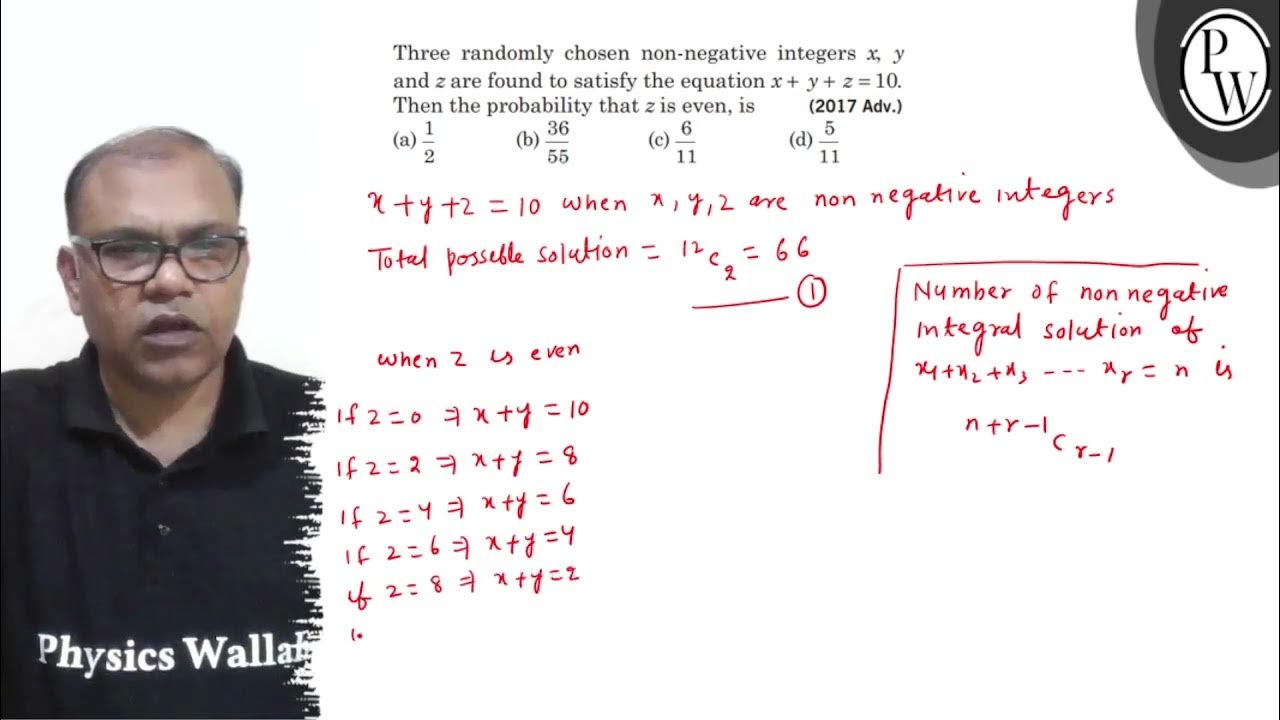 Three randomly chosen non-negative integers x, y
and z are found to satisfy the equation x + y + z = 10.
Then the probability that z is even, is (2017 Adv.)
(a) 1/2 (b) 36/55 (c) 6/11 (d) 5/11
PW
x+y+z = 10 when x, y, z are non negative integers
Total possible solution = ¹²C₂ = 66
①
Number of non negative
integral solution of
x₁+x₂+x₃ --- xᵣ = n is
n+r-1Cr-1
when z is even
If z=0 ⇒ x+y=10
If z=2 ⇒ x+y=8
If z=4 ⇒ x+y=6
If z=6 ⇒ x+y=4
if z=8 ⇒ x+y=2
Physics Wallah